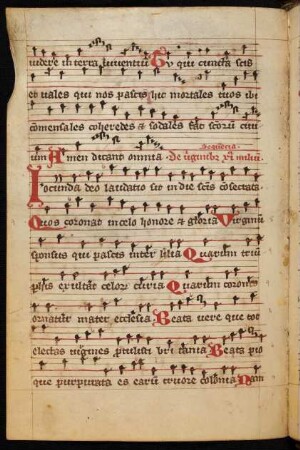 videre in terra viventiu Tu qui cuncta scis
et vales qui nos pascis hic mortales tuos ibi
comensales coheredes et sodales fac scoru civi
um Amen dicant omnia Sequencia
De virginibus
Iocunda deo laudatio sit in die sctis cosectata
Quos coronat in celo honore et gloria Virginu
sponsus qui pascis inter lilia Quarum triu
phis exultat celor curia Quarum coronis
ornatur mater ecclesia Beata vere que tot
electas virgines protulisti
Beata pio
que purpurata es earu cruore colonia Nam